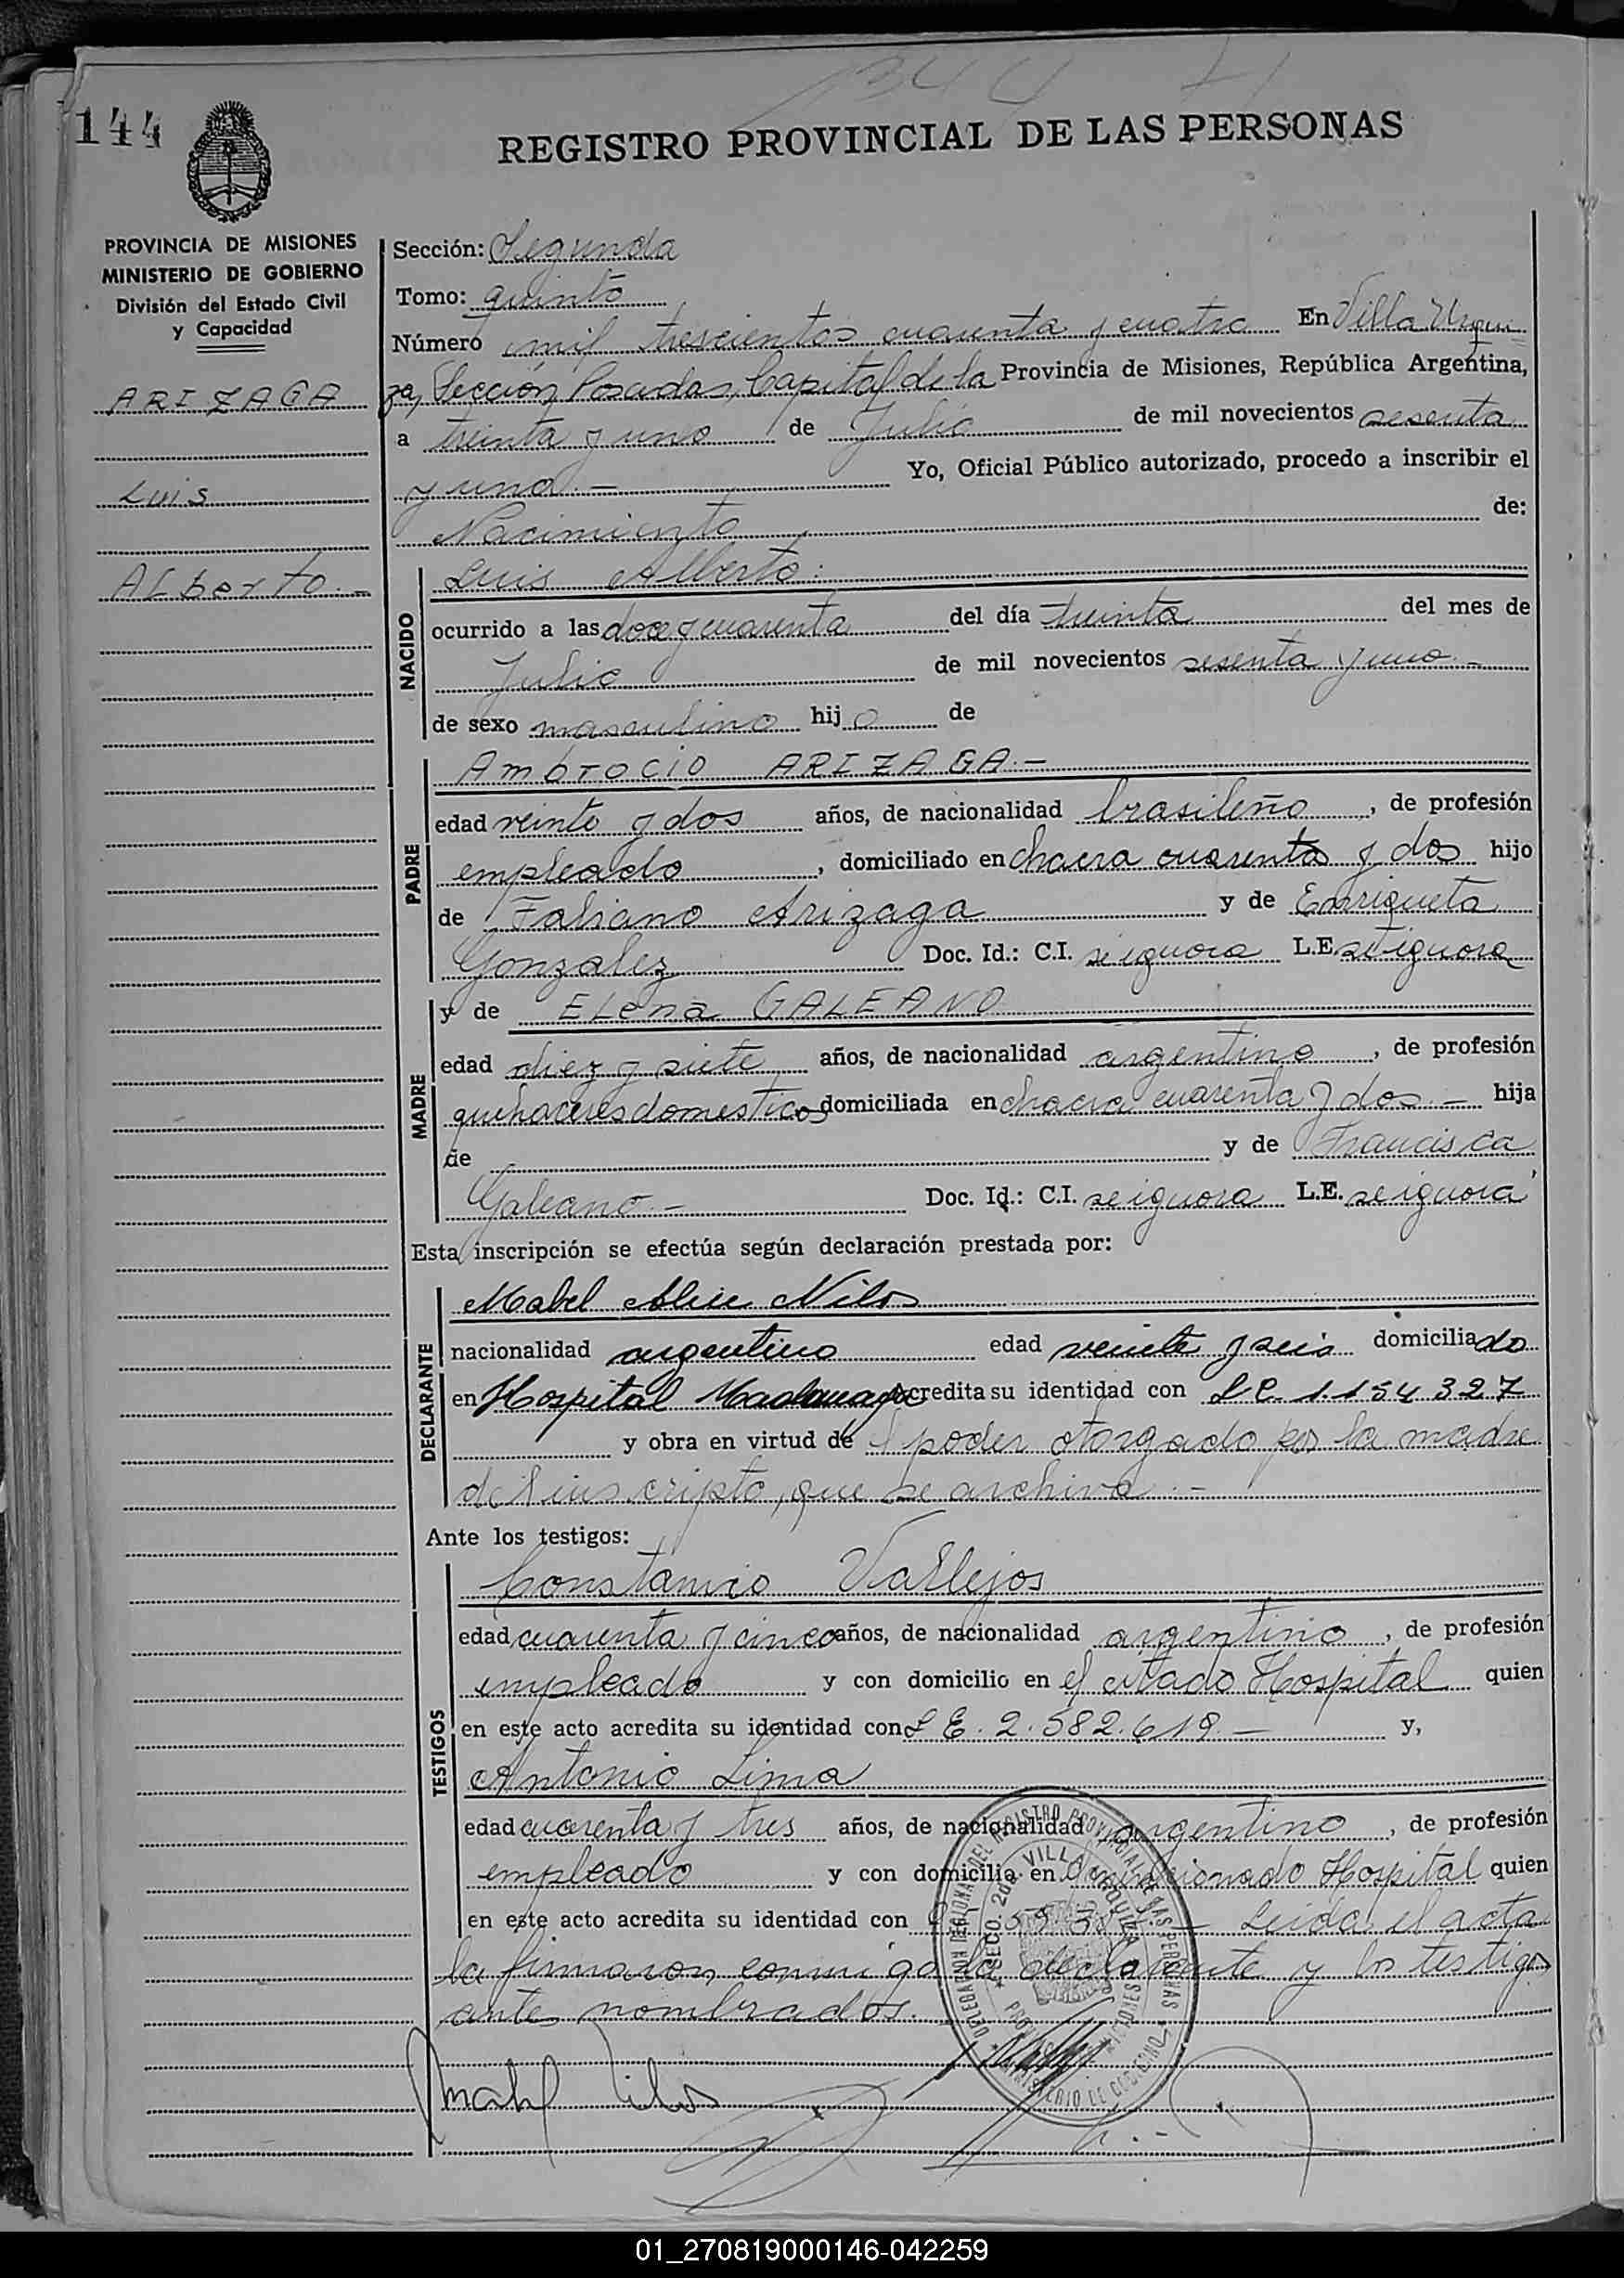 1344
144
REGISTRO PROVINCIAL DE LAS PERSONAS
PROVINCIA DE MISIONES
MINISTERIO DE GOBIERNO
División del Estado Civil
y Capacidad
ARIZAGA
Luis
ALberto.-
Sección: Segunda
Tomo: quinto
Número mil trescientos cuarenta y cuatro En Villa Urqui
za, Sección Posadas, Capital de la Provincia de Misiones, República Argentina,
a treinta y uno de Julio de mil novecientos sesenta
y uno.- Yo, Oficial Público autorizado, procedo a inscribir el
Nacimiento de:
NACIDO
Luis Alberto:
ocurrido a las doce y cuarenta del día treinta del mes de
Julio de mil novecientos sesenta y uno.-
de sexo masculino hijo de
PADRE
Ambrocio ARIZAGA.-
edad veinte y dos años, de nacionalidad brasileño, de profesión
empleado, domiciliado en chacra cuarenta y dos hijo
de Fabiano Arizaga y de Enriqueta
Gonzalez Doc. Id.: C.I. se ignora L.E. se ignora
MADRE
y de ELena GALEANO
edad diez y siete años, de nacionalidad argentina, de profesión
quehaceres domesticos domiciliada en chacra cuarenta y dos.- hija
de y de Francisca
Galeano.- Doc. Id.: C.I. se ignora L.E. se ignora
Esta inscripción se efectúa según declaración prestada por:
DECLARANTE
Mabel Alice Nilos
nacionalidad argentino edad veinte y seis domiciliado
en Hospital Madariaga acredita su identidad con L C 1.154.327
y obra en virtud de l poder otorgado por la madre
del inscripto, que se archiva.-
Ante los testigos:
TESTIGOS
Constancio Vallejos
edad cuarenta y cinco años, de nacionalidad argentino, de profesión
empleado y con domicilio en el citado Hospital quien
en este acto acredita su identidad con L E. 2.582.619.- y,
Antonio Lima
edad cuarenta y tres años, de nacionalidad argentino, de profesión
empleado y con domicilio en Hospital quien
en este acto acredita su identidad con - Leida el acta
la firmaron conmigo la declarante y los testigos
ante nombrados.
Mabel Nilos
01_270819000146-042259